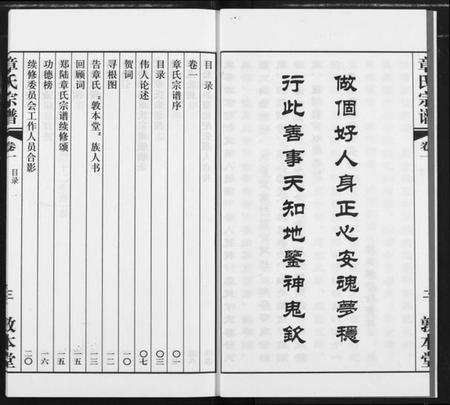 章氏宗谱
卷一
二
敦本堂
做個好人身正心安魂夢穩
行此善事天知地鑒神鬼欽
目录
卷一
章氏宗谱序 〇一
目录 〇三
伟人论述 〇七
贺词 一〇
寻根图 一二
告章氏“敦本堂”族人书 一三
回顾词 一五
郑陆章氏宗谱续修颂 一五
功德榜 一六
续修委员会工作人员合影 二〇
章氏宗谱
卷一
目录
三
敦本堂